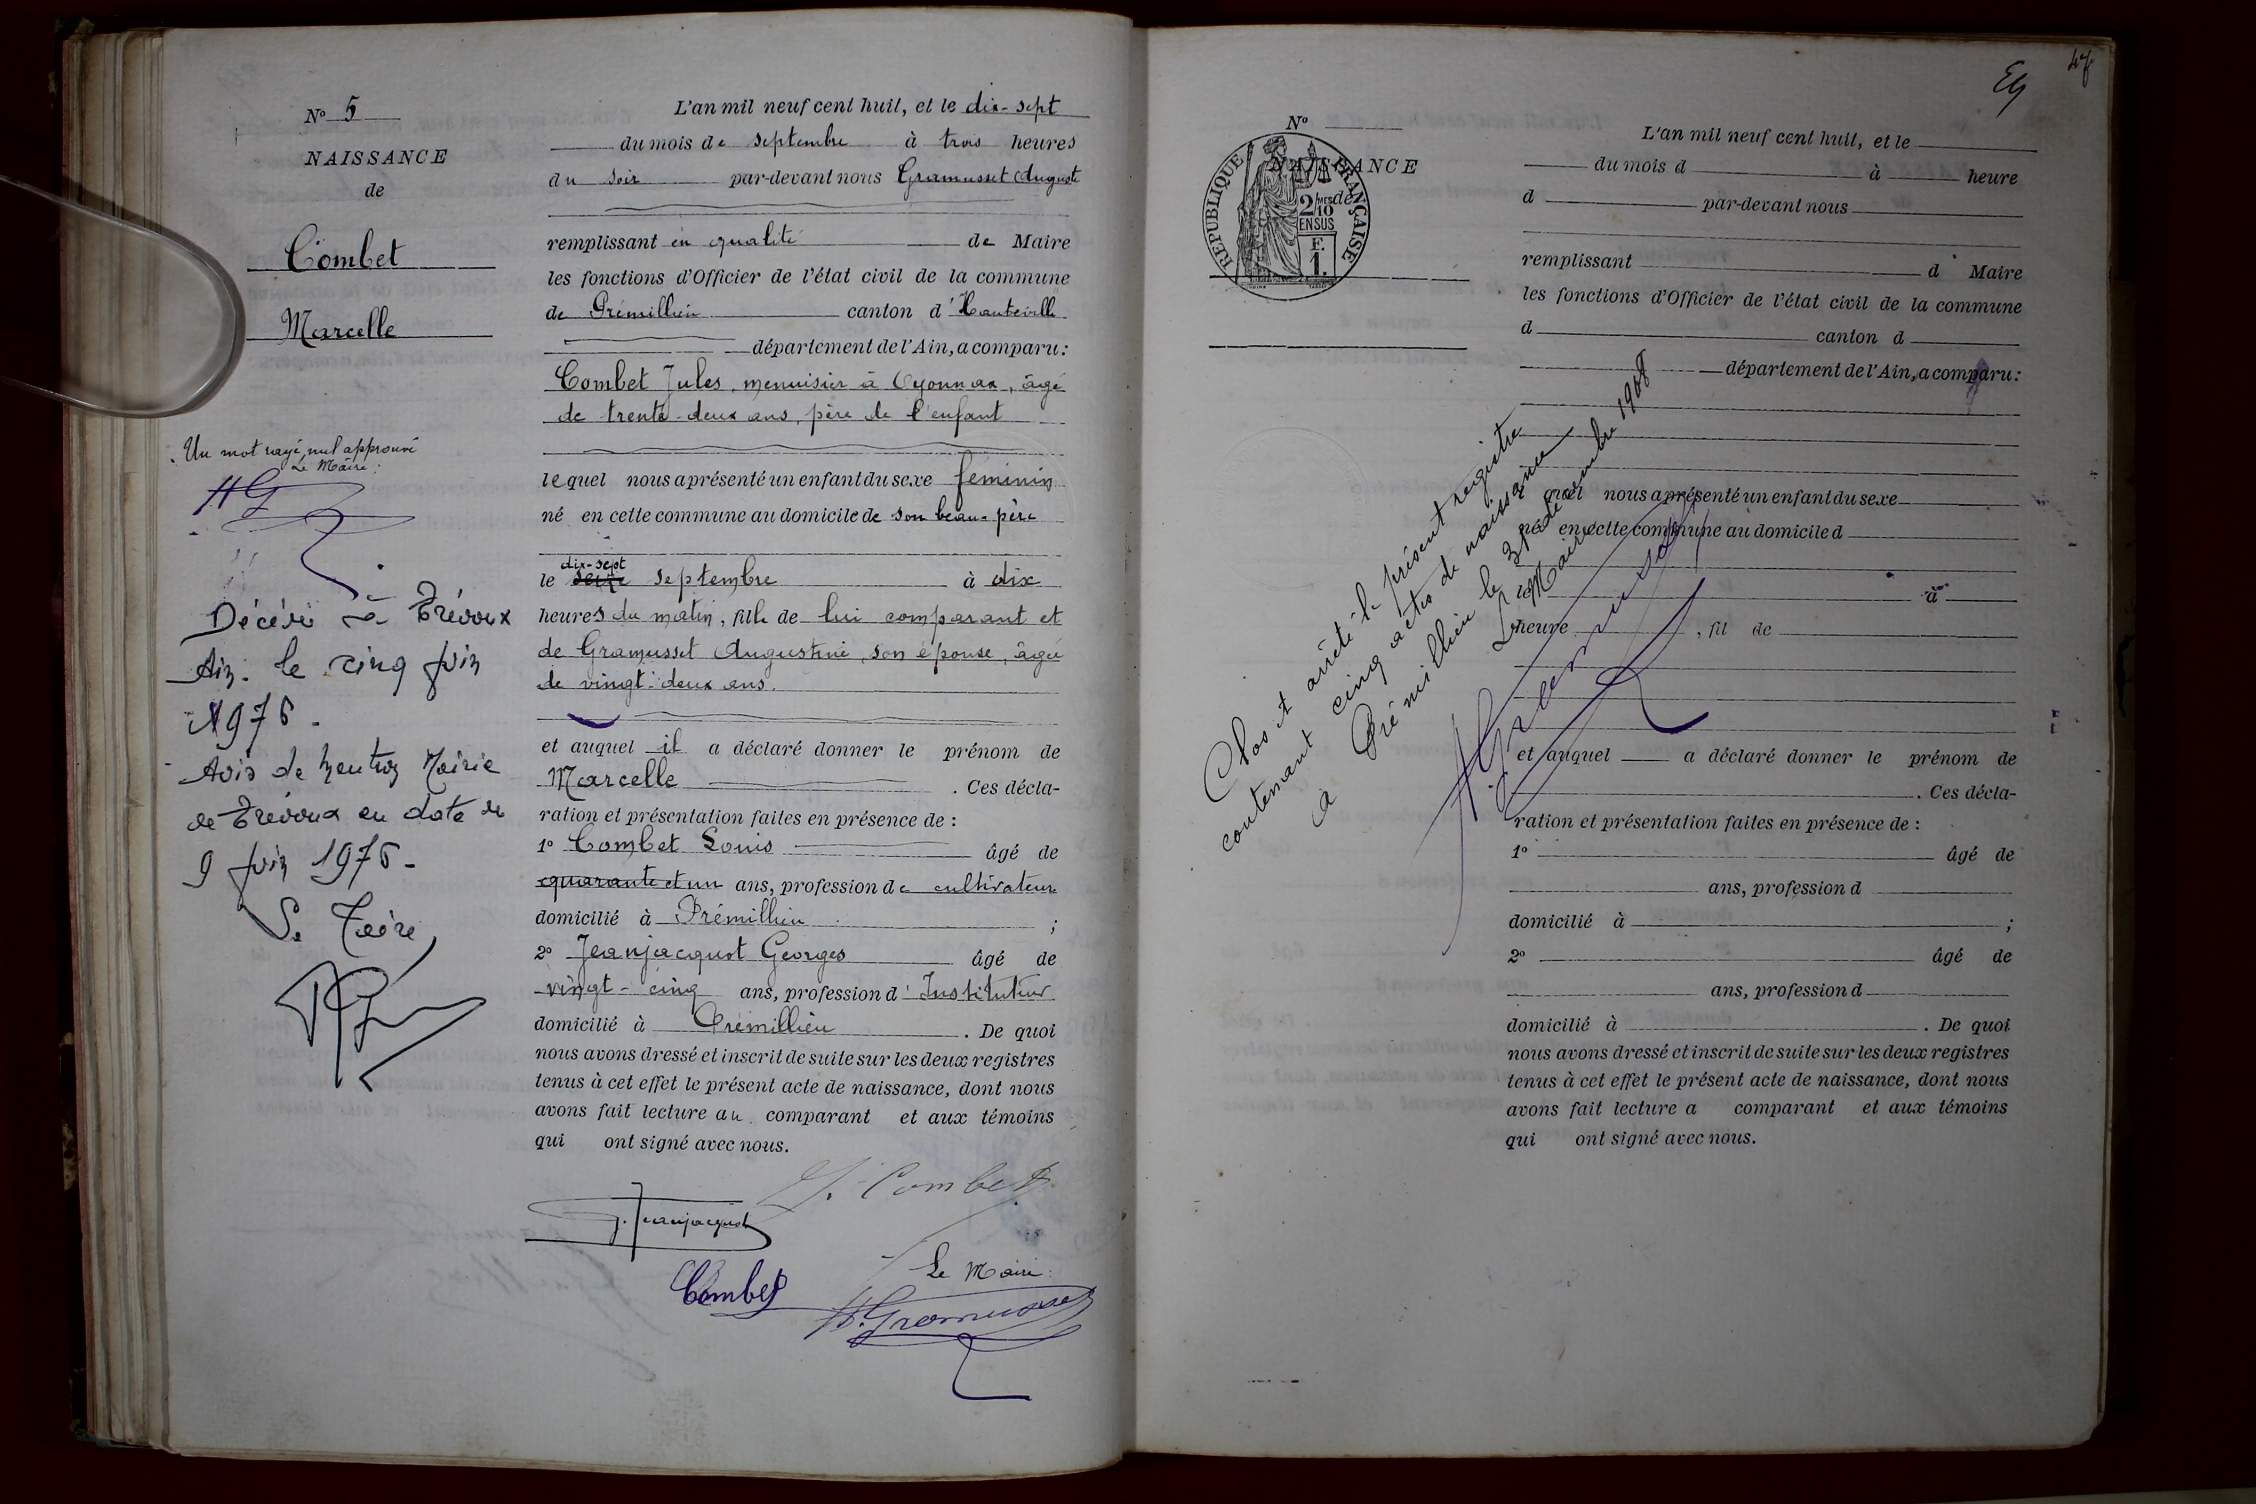 Nº 5
NAISSANCE
de
Combet
Marcelle
Un mot rayé, nul approuvé
Le Maire :
HG
Décédée à Trévoux
Ain. le cinq juin
1976.
Avis de mention Mairie
de Trévoux en date du
9 juin 1976.
Le Maire,
L'an mil neuf cent huit, et le dix-sept
du mois de septembre à trois heures
du soir par-devant nous Gramusset August
remplissant en qualité de Maire
les fonctions d'Officier de l'état civil de la commune
de Prémillieu canton d'Hauteville
département de l'Ain, a comparu :
Combet Jules, menuisier à Oyonnax, âgé
de trente-deux ans, père de l'enfant
lequel nous a présenté un enfant du sexe féminin
né en cette commune au domicile de son beau-père
dix-sept
le seize septembre à dix
heures du matin, fille de lui comparant et
de Gramusset Augustine, son épouse, âgée
de vingt-deux ans.
et auquel il a déclaré donner le prénom de
Marcelle . Ces décla-
ration et présentation faites en présence de :
1º Combet Louis âgé de
quarante et un ans, profession de cultivateur
domicilié à Prémillieu ;
2º Jeanjacquot Georges âgé de
vingt-cinq ans, profession d'Instituteur
domicilié à Prémillieu . De quoi
nous avons dressé et inscrit de suite sur les deux registres
tenus à cet effet le présent acte de naissance, dont nous
avons fait lecture au comparant et aux témoins
qui ont signé avec nous.
J. Combet
G. Jeanjacquot
Le Maire :
Combet
A. Gramusset
47
Nº
NAISSANCE
de
RÉPUBLIQUE FRANÇAISE
2/10 MES
EN SUS
F.
1.
L'an mil neuf cent huit, et le
du mois d à heure
d par-devant nous
remplissant d Maire
les fonctions d'Officier de l'état civil de la commune
d canton d
département de l'Ain, a comparu :
quel nous a présenté un enfant du sexe
né en cette commune au domicile d
le à
heure , fil de
et auquel a déclaré donner le prénom de
. Ces décla-
ration et présentation faites en présence de :
1º âgé de
ans, profession d
domicilié à ;
2º âgé de
ans, profession d
domicilié à . De quoi
nous avons dressé et inscrit de suite sur les deux registres
tenus à cet effet le présent acte de naissance, dont nous
avons fait lecture a comparant et aux témoins
qui ont signé avec nous.
Clos et arrêté le présent registre
contenant cinq actes de naissance
a Prémillieu le 31 décembre 1908
Le Maire
A. Gramusset